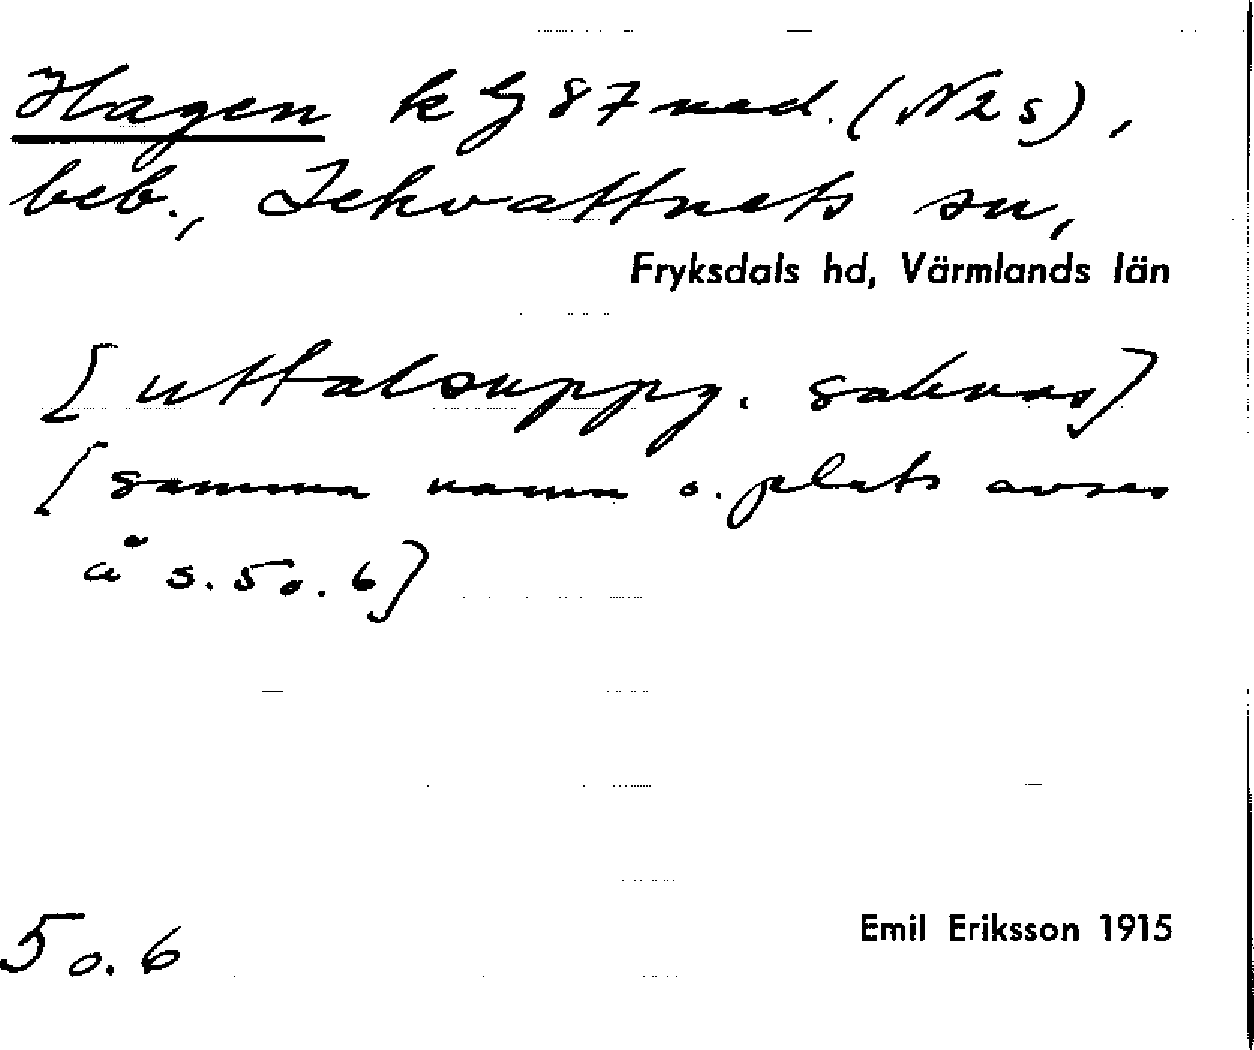 Hagen k G 87 ned. (N2s),
beb., Lekvattnets sn,
Fryksdals hd, Värmlands län
[uttalsuppg. saknas]
[samma namn o. plats avses
å s. 5 o. 6]
5 o. 6
Emil Eriksson 1915